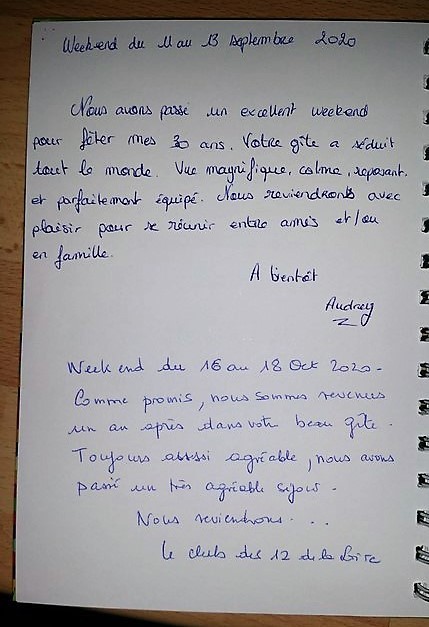 Weekend du 11 au 13 septembre 2020
Nous avons passé un excellent weekend
pour fêter mes 30 ans. Votre gîte a séduit
tout le monde. Vue magnifique, calme, reposant.
et parfaitement équipé. Nous reviendrons avec
plaisir pour se réunir entre amis et/ou
en famille.
A bientôt
Audrey
Week end du 16 au 18 Oct 2020-
Comme promis, nous sommes revenus
un an après dans votre beau gîte.
Toujours aussi agréable, nous avons
passé un très agréable séjour.
Nous reviendrons...
Le clubs des 12 de la Loire